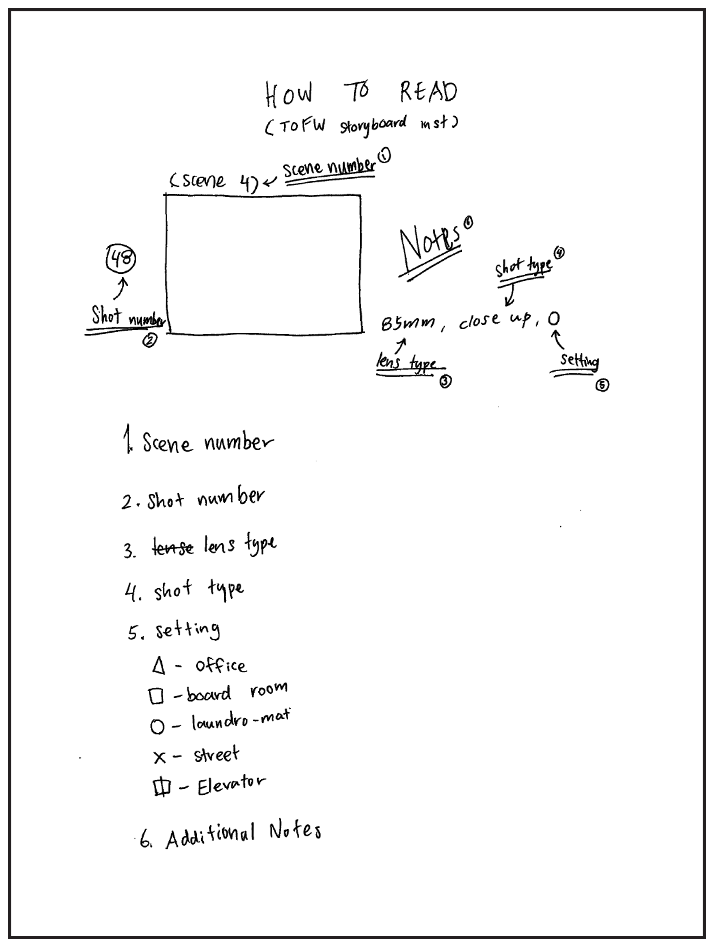 HOW TO READ
(TOFW storyboard inst)
(scene 4) Scene number 1
48
Shot number
2
Notes 6
shot type 4
85mm, close up, O
lens type
3
setting
5
1. Scene number
2. Shot number
3. tense lens type
4. shot type
5. setting
△ - office
□ - board room
○ - laundro-mat
x - street
⎅ - Elevator
6. Additional Notes